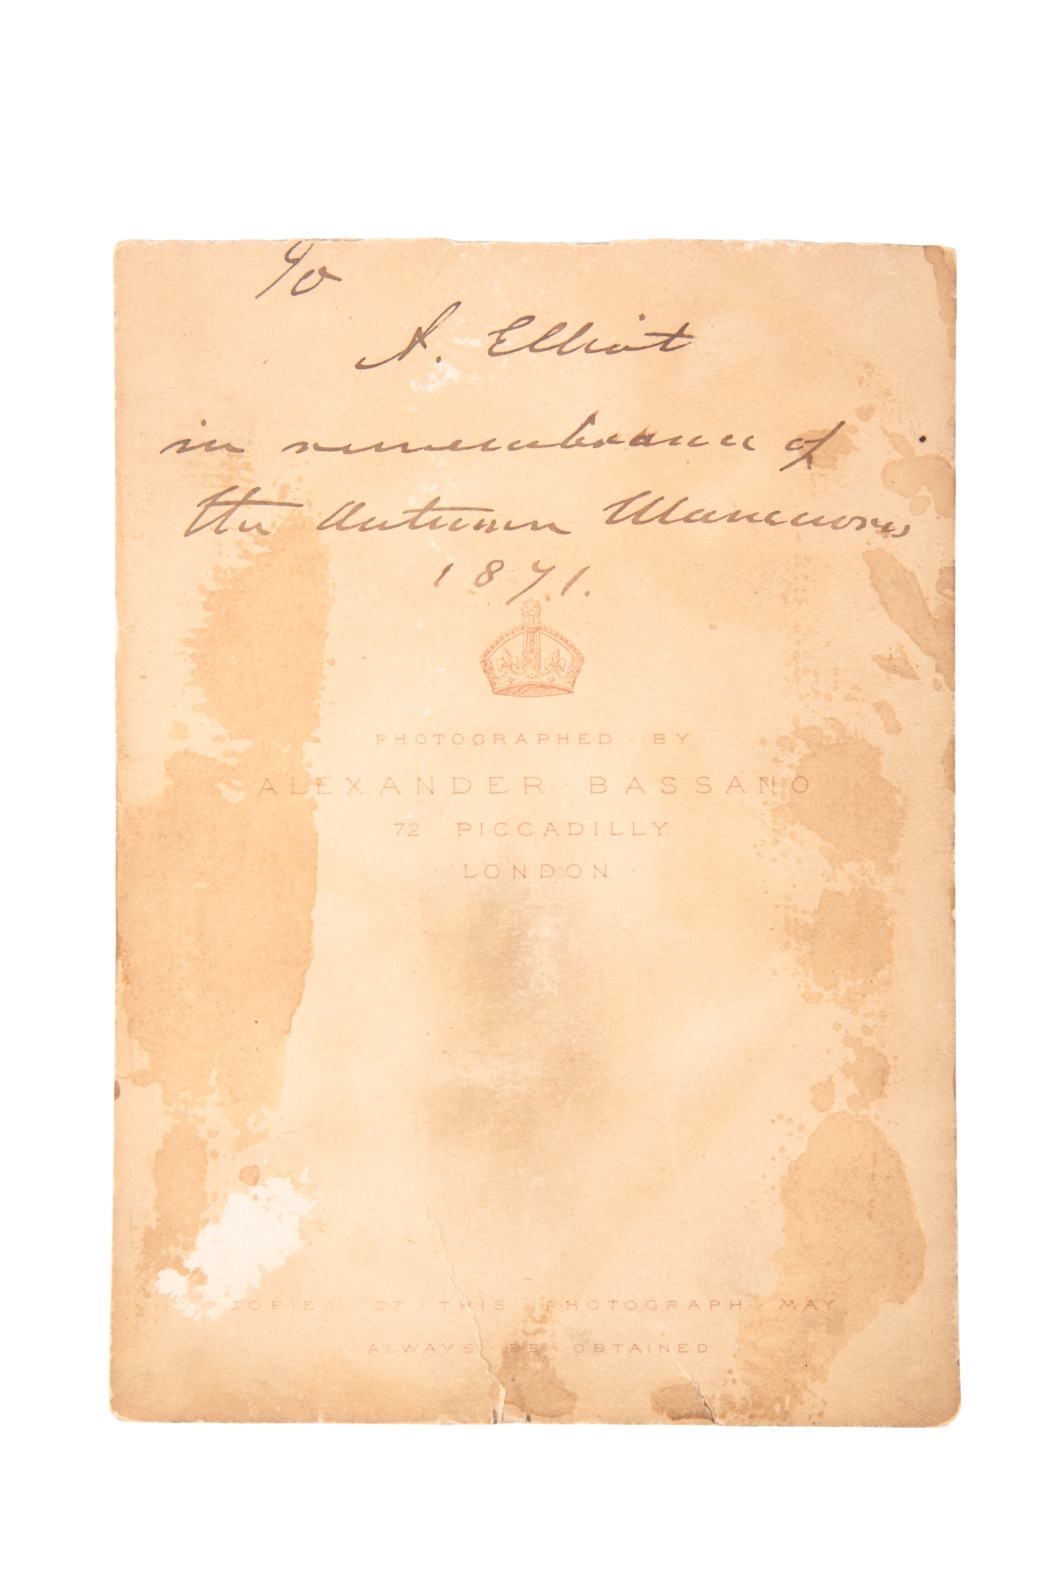 To
A. Elliot
in remembrance of
the Autumn Maneuvres
1871.
PHOTOGRAPHED · BY
ALEXANDER · BASSANO
72 PICCADILLY
· LONDON ·
COPIES · OF · THIS · PHOTOGRAPH · MAY
ALWAYS · BE · OBTAINED